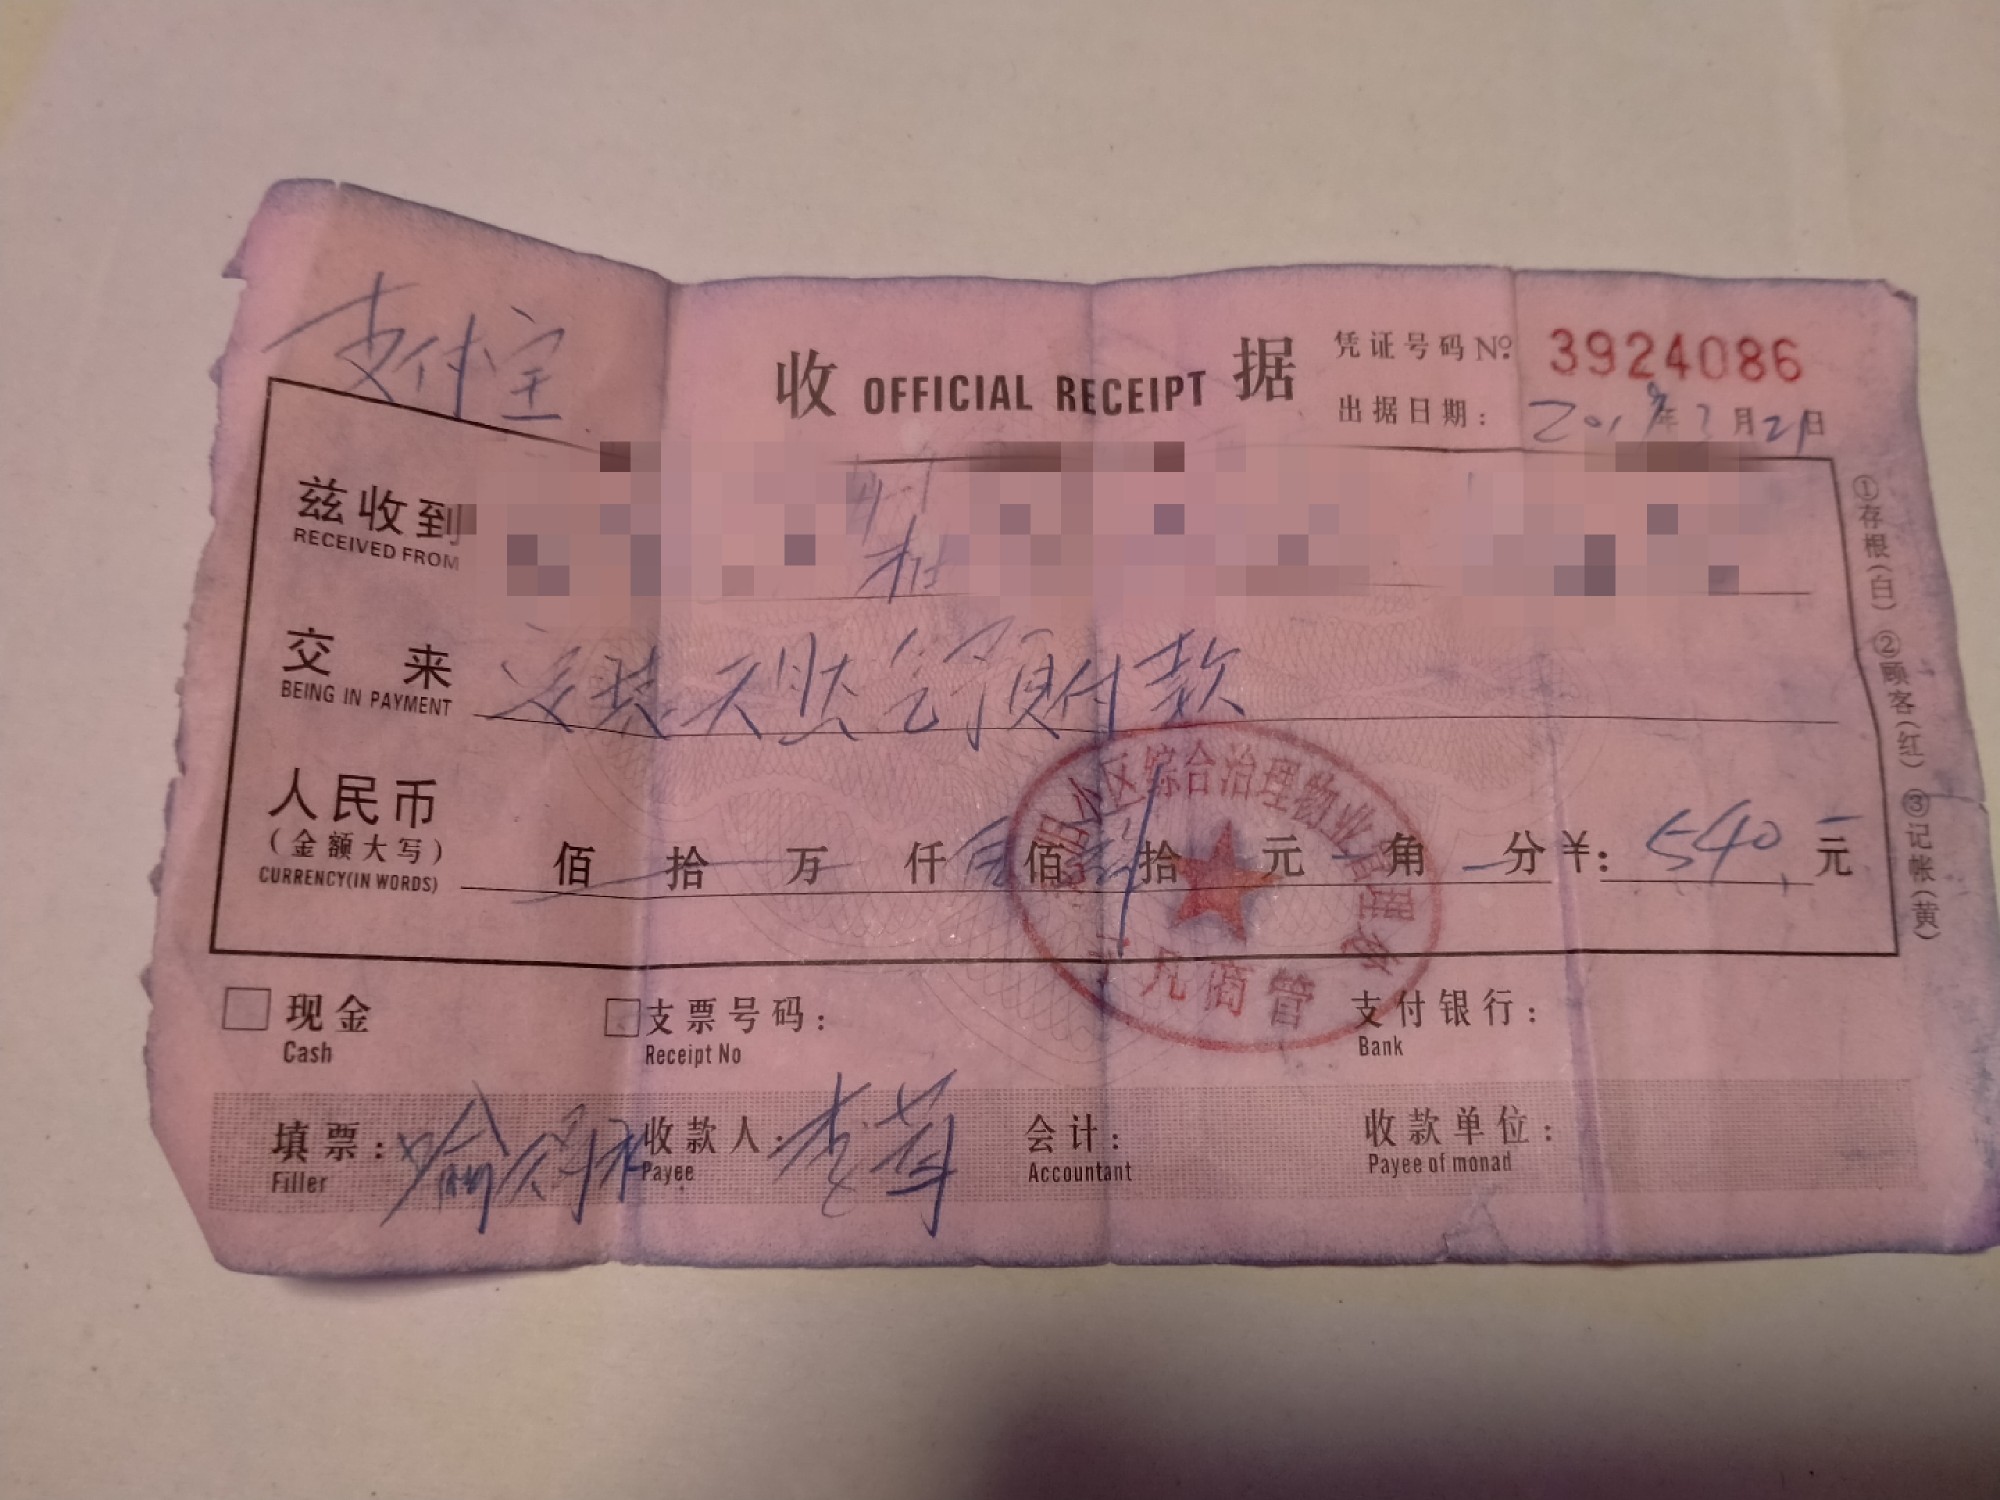 支付宝
收 OFFICIAL RECEIPT 据
凭证号码 Nº 3924086
出据日期： 2019年 月21日
兹收到
RECEIVED FROM
交 来 安装天然气预付款
BEING IN PAYMENT
人民币
(金额大写)
CURRENCY(IN WORDS)
佰 拾 万 仟 伍 佰 肆 拾 元 角 分 ¥: 540 元
小区综合治理物业管理
凡商管
①存根(白) ②顾客(红) ③记帐(黄)
现金 支票号码: 支付银行:
Cash Receipt No Bank
填票: 喻 收款人: 李 会计: 收款单位:
Filler Payee Accountant Payee of monad